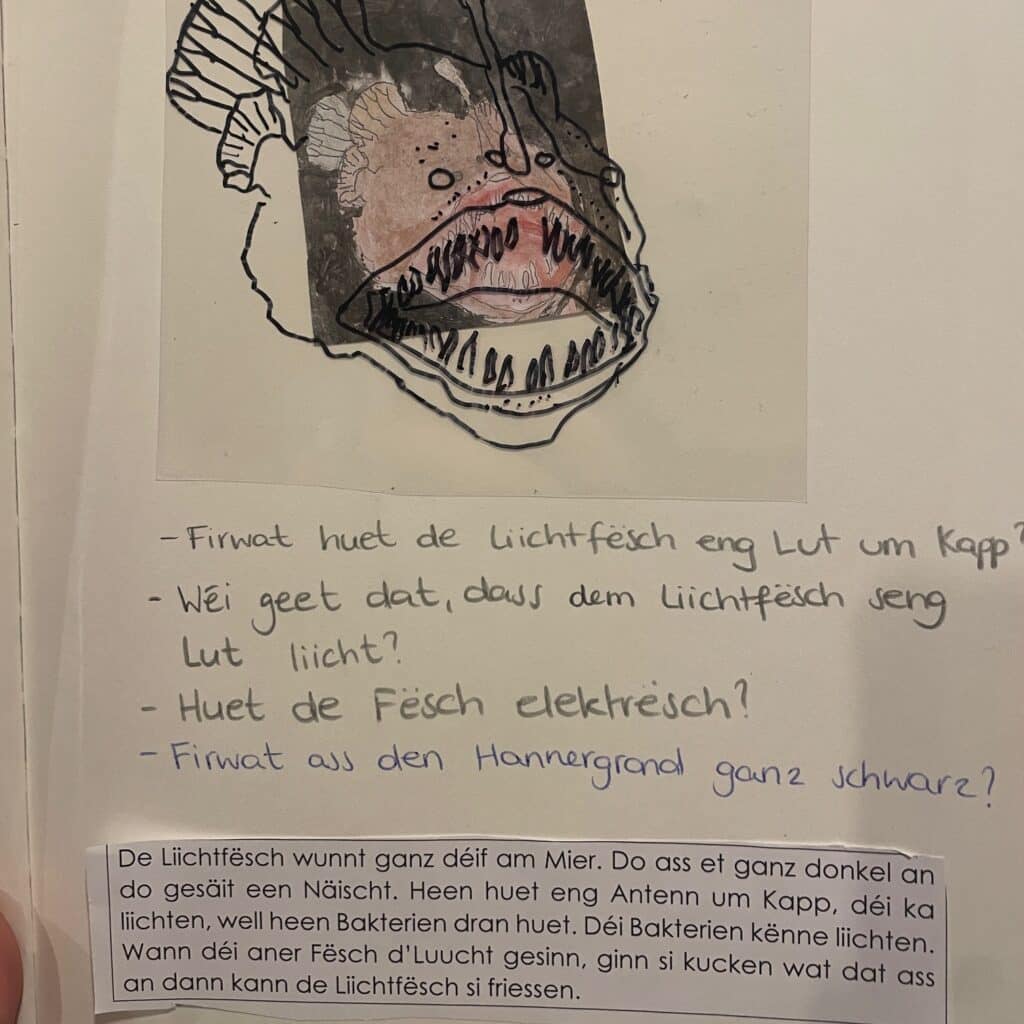 - Firwat huet de Liichtfësch eng Lut um Kapp?
- Wéi geet dat, dass dem Liichtfësch seng
Lut liicht?
- Huet de Fësch elektrësch?
- Firwat ass den Hannergrond ganz schwarz?
De Liichtfësch wunnt ganz déif am Mier. Do ass et ganz donkel an
do gesäit een Näischt. Heen huet eng Antenn um Kapp, déi ka
liichten, well heen Bakterien dran huet. Déi Bakterien kënne liichten.
Wann déi aner Fësch d'Luucht gesinn, ginn si kucken wat dat ass
an dann kann de Liichtfësch si friessen.